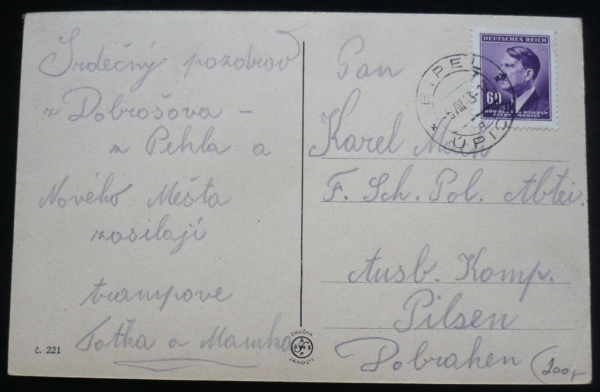 Srdečný pozdrav
z Dobrošova –
z Pekla a
Nového Města
zasílají
trampove
Totka a Mamka
č. 221
ZNAČKA
JAKOSTI
Pan
Karel
F. Sch. Pol. Abtei.
Ausb. Komp.
Pilsen
Dobraken
DEUTSCHES REICH
60
BÖHMEN UND MÄHREN
ČECHY A MORAVA
ÚPICE